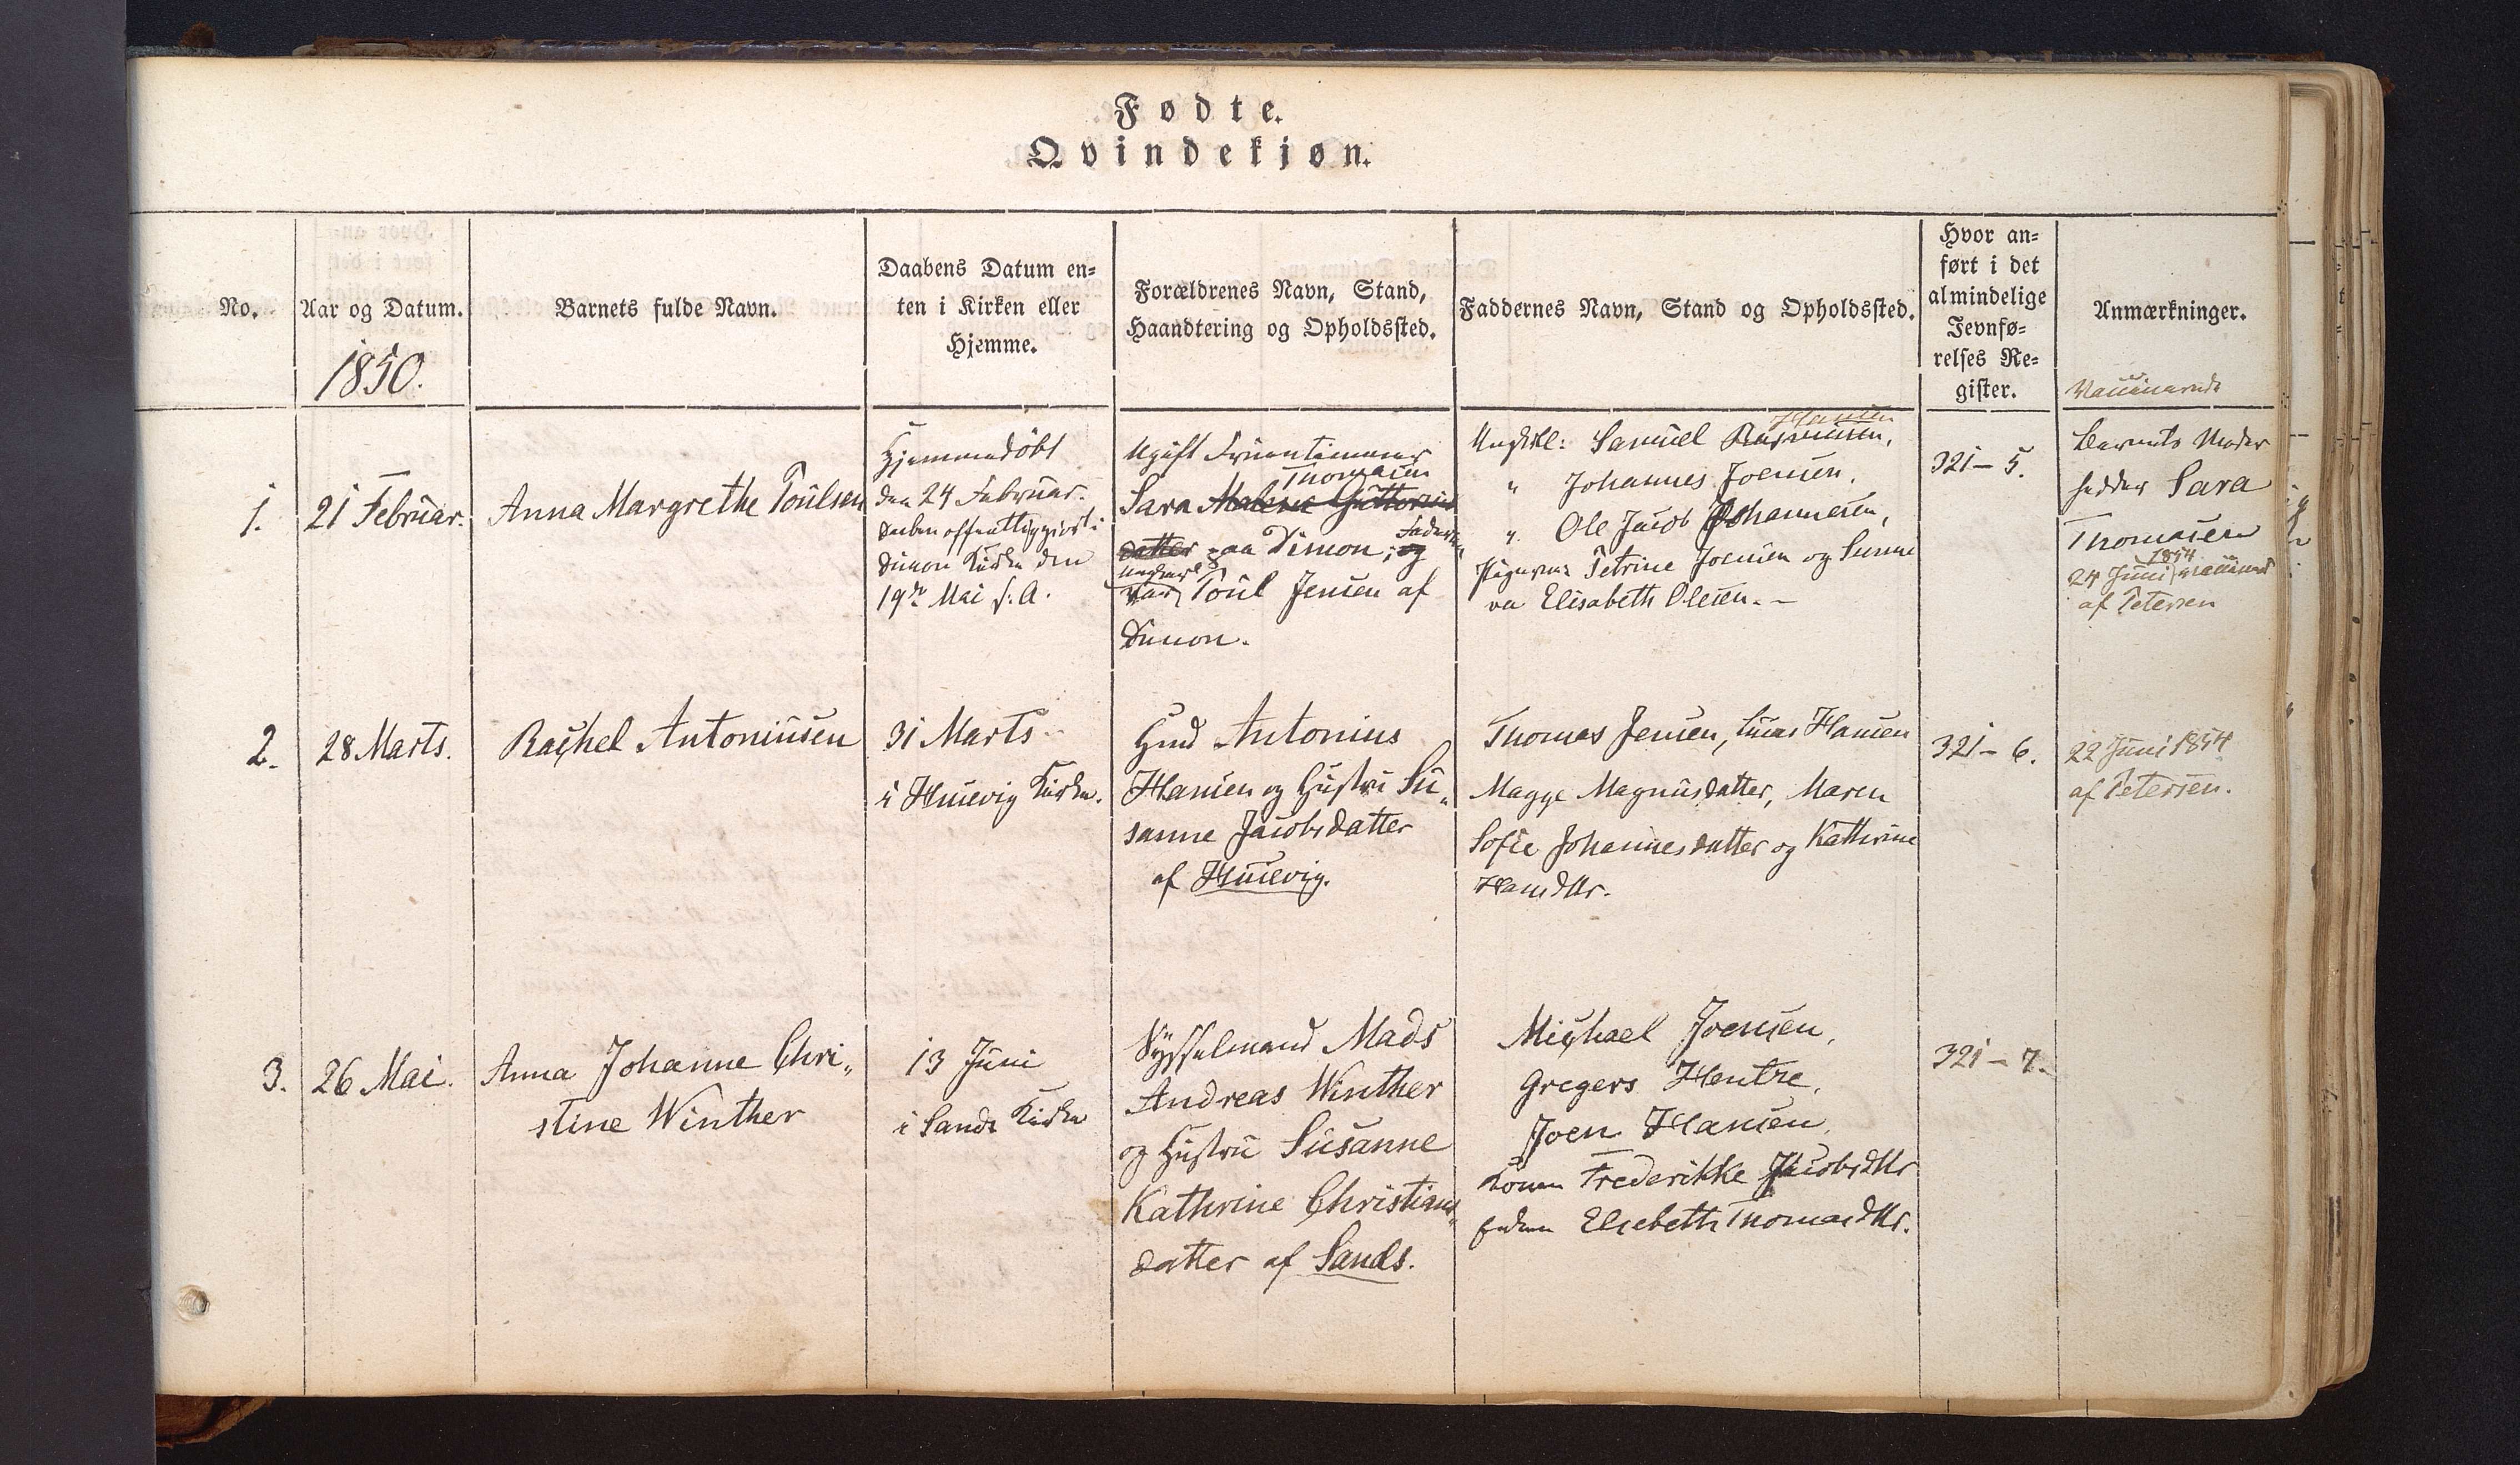 Fødte.
Qvindekjøn.
No.
Aar og Datum.
1850.
Barnets fulde Navn.
Daabens Datum en=
ten i Kirken eller
Hjemme.
Forældrenes Navn, Stand,
Haandtering og Opholdssted.
Faddernes Navn, Stand og Opholdssted.
Hvor an=
ført i det
almindelige
Jevnfø=
relses Re=
gister.
Anmærkninger.
1.
21 Februar.
Anna Margrethe Poulsen
Hjemmedöbt
den 24 Februar.
Daaben offentliggjort i
Dimon Kirke den
19de Mai s. A.
Ugift Fruentimmer
Thomasen
Sara Malene Guttorms
datter paa Dimon; og
Ungkarl
Poul Jensen af
Dimon.
Hansen
Ungkl: Samuel Rasmussen,
" Johannes Joensen,
" Ole Jacob Johannesen,
Pigerne Petrine Joensen og Sunne
va Elisabeth Olesen. -
321 - 5.
Barnets Moder
hedder Sara
Thomasen
1854
24 Juni vaccineret
af Petersen
2.
28 Marts.
Rachel Antoniusen
31 Marts
i Husevig Kirke.
Gmd Antonius
Hansen og Hustru Su„
sanne Jacobsdatter
af Husevig.
Thomas Jensen, Lucas Hansen
Magge Magnusdatter, Maren
Sofie Johannesdatter og Kathrine
Hansdtr.
321 - 6.
22 Juni 1854
af Petersen.
3.
26 Mai.
Anna Johanne Chri„
stine Winther
13 Juni
i Sands Kirke
Sysselmand Mads
Andreas Winther
og Hustru Susanne
Kathrine Christians„
datter af Sands.
Michael Joensen,
Gregers Hentze,
Joen Hansen,
Konen Frederikke Jacobsdtr
Elsebeth Thomasdtr.
321 - 7.